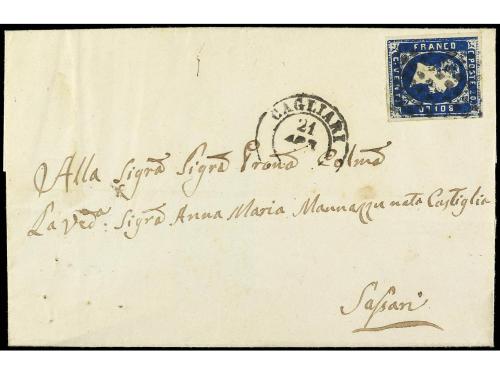 FRANCO
C. POSTE
C. VENTI
BOLLO
CAGLIARI
21
APR
Alla Sigra Sigra Prona Colma
La Veda: Sigra Anna Maria Mannazzu nata Castiglia
Sassari